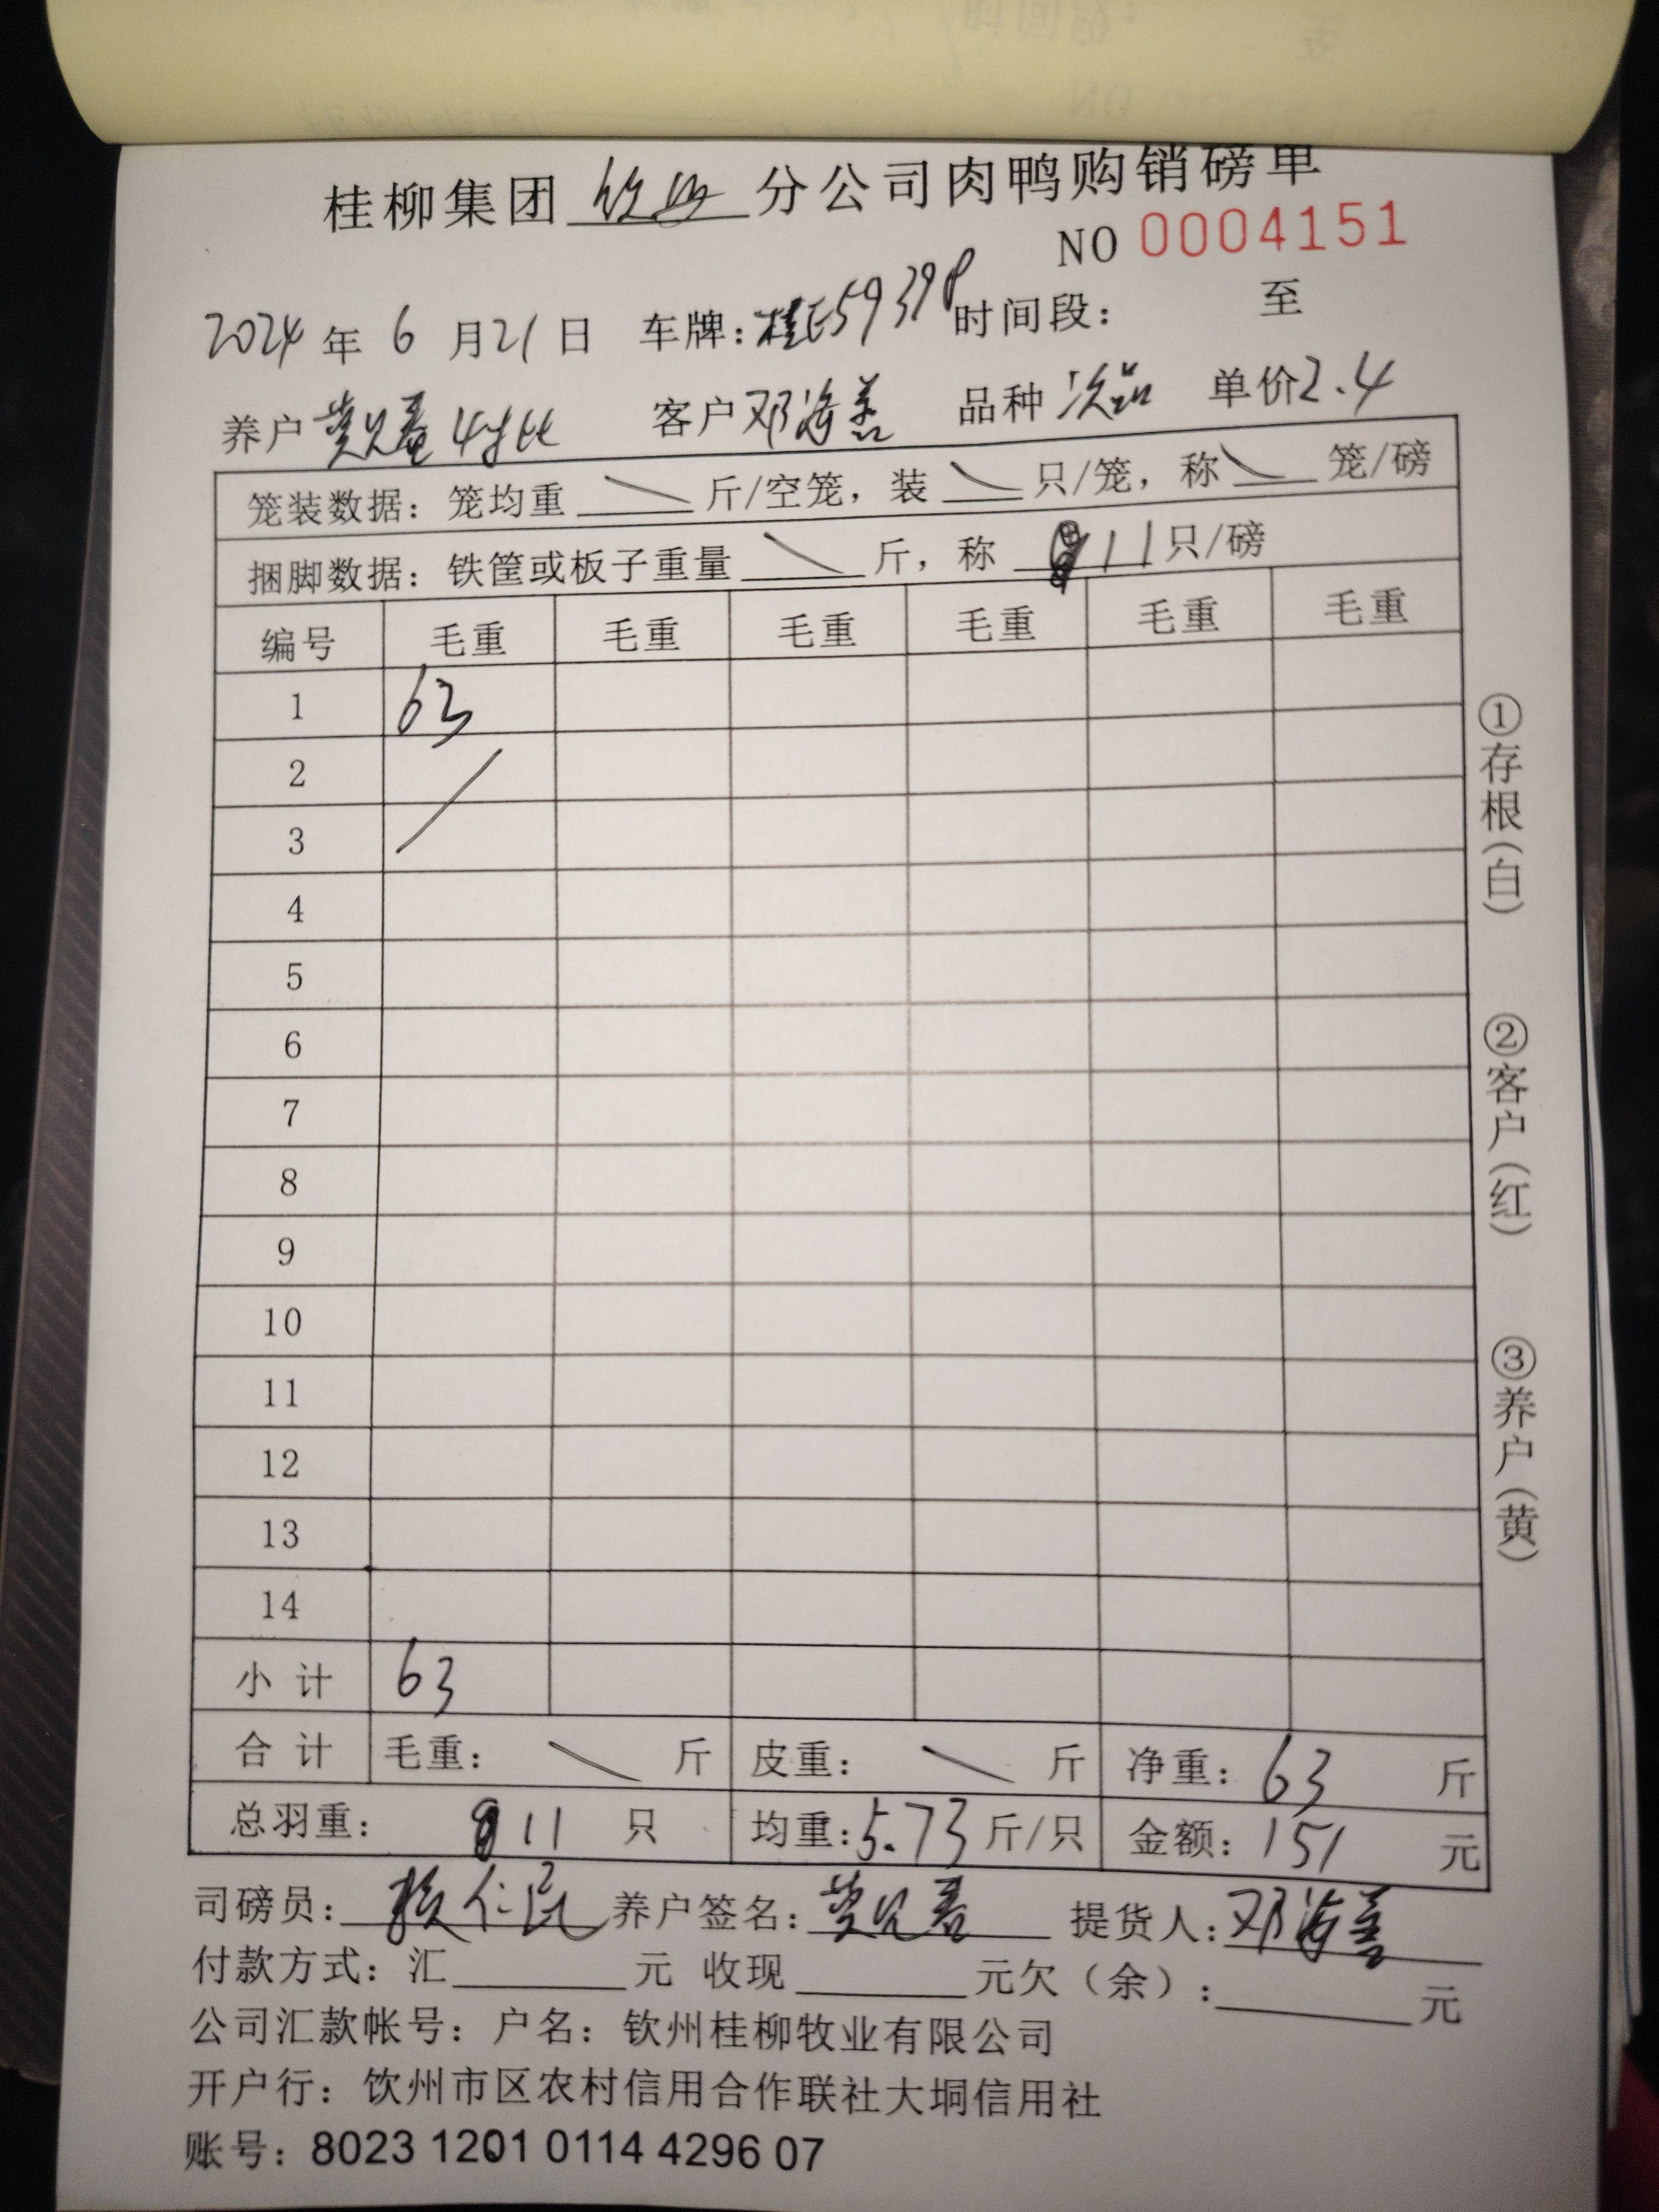 桂柳集团 钦州 分公司肉鸭购销磅单
NO 0004151
2024 年 6 月 21 日 车牌: 桂E59398 时间段: 至
养户 客户 邓海善 品种 次品 单价 2.4
笼装数据: 笼均重 斤/空笼, 装 只/笼, 称 笼/磅
捆脚数据: 铁筐或板子重量 斤, 称 11 只/磅
编号 毛重 毛重 毛重 毛重 毛重 毛重
1 63
2
3
4
5
6
7
8
9
10
11
12
13
14
小计 63
合计 毛重: 斤 皮重: 斤 净重: 63 斤
总羽重: 11 只 均重: 5.73 斤/只 金额: 151 元
司磅员: 养户签名: 提货人: 邓海善
付款方式: 汇 元 收现 元欠(余): 元
公司汇款帐号: 户名: 钦州桂柳牧业有限公司
开户行: 钦州市区农村信用合作联社大垌信用社
账号: 8023 1201 0114 4296 07
①存根(白) ②客户(红) ③养户(黄)